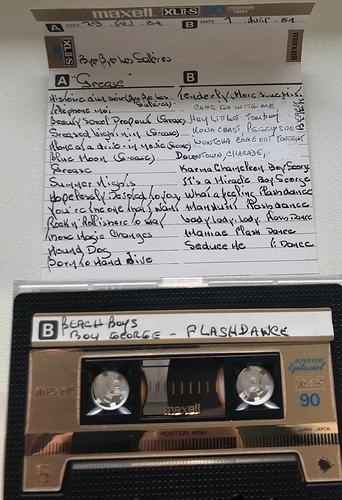 maxell XLII-S POSITION HIGH
A DATE 25 B DATE 1
XLII-S
maxell
Bye Bye les
A "Grease" B
Histoire d'un soir (Bye Bye les
Telephone me Come go with me
Beauty school Dropout (Grease) Hey little tomboy
Greased lightnin (Grease) Kona Coast Peggy Sue
Alone at a drive-in movie (Grease) Wontcha come out tonight
Blue Moon (Grease) Belles of
Grease Karma Chameleon Boy George
Summer Nights It's a Miracle Boy George
Hopelessly Devoted to you What a feeling Flashdance
You're the one that I want Manhunt Flashdance
Rock n Roll is here to stay Lady lady lady Flash Dance
Those Magic Changes Maniac Flash Dance
Hound Dog Seduce Me F. Dance
Born to Hand Jive
B BEACH BOYS
BOY GEORGE - FLASHDANCE
Epitaxial
XLII-S
90
maxell
POSITION·HIGH
JAPAN JAPON